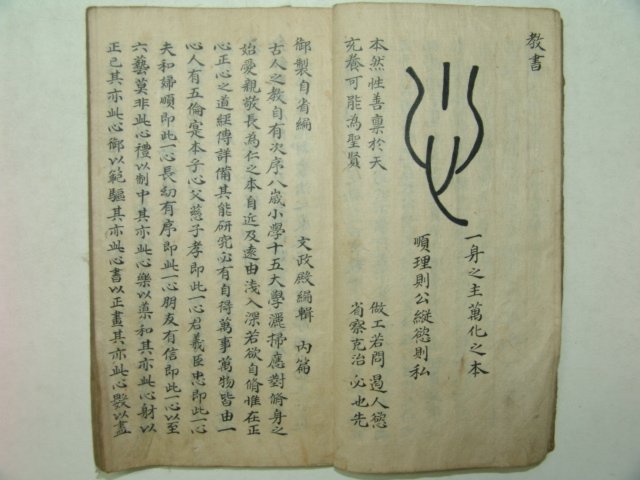 教書
心
一身之主萬化之本
順理則公縱慾則私
本然性善稟於天
充養可能為聖賢
做工若問遏人慾
省察克治必也先
御製自省編 文政殿編輯 內篇
古人之教自有次序八歲小學十五大學灑掃應對脩身之
始愛親敬長為仁之本自近及遠由淺入深若欲自脩惟在正
心正心之道經傳詳備其能研究必有自得萬事萬物皆由一
心人有五倫寔本乎心父慈子孝即此一心君義臣忠即此一心
夫和婦順即此一心長幼有序即此一心朋友有信即此一心以至
六藝莫非此心禮以制中其亦此心樂以和其亦此心射以
正己其亦此心御以範驅其亦此心書以正畫其亦此心數以盡